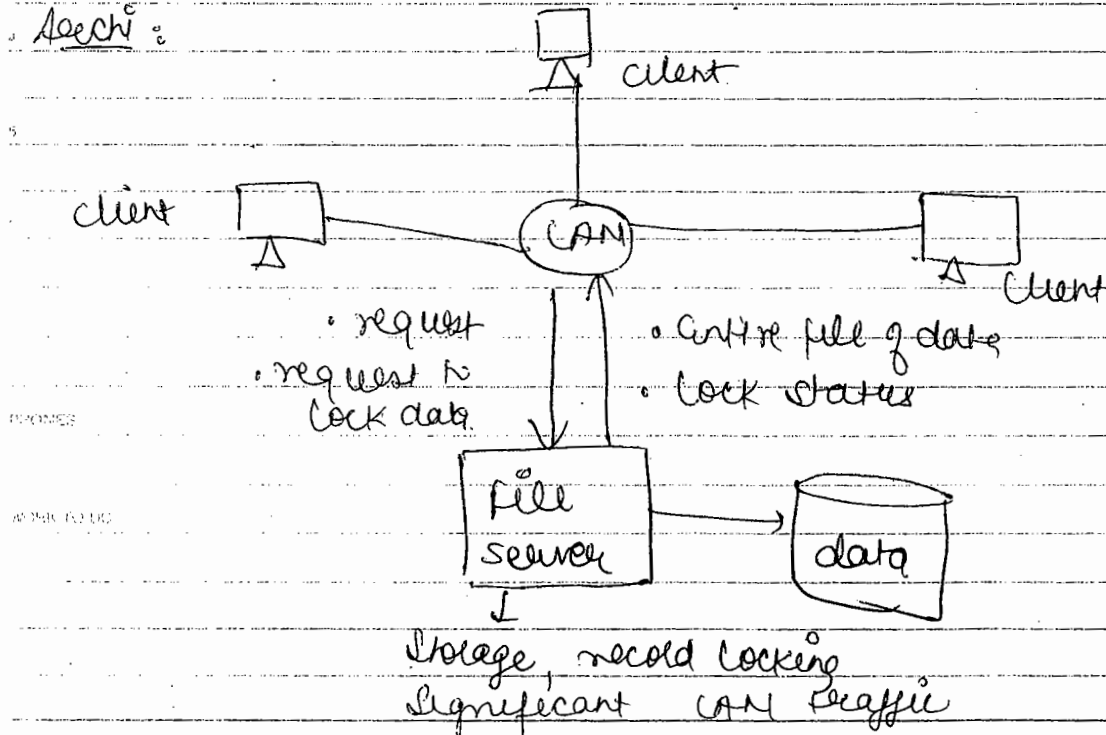 Archi :
client
client
LAN
client
• request
• request to
lock data.
• Entire file of data
• Lock status
File
server
data
Storage, record locking
Significant LAN Traffic